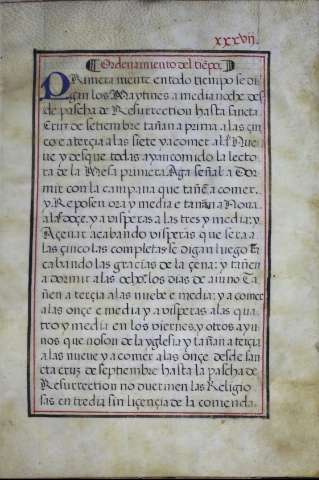 xxxvij
Ordenamiento del tiẽpo
Primeramente en todo tiempo se di
gan los Maytines a media noche des
de pascha de Resurrection hasta sancta
Cruz de setiembre tañan a prima a las çin
co e a terçia a las siete y a comer a las Nue
ue y desque todas ayan comido la lecto
ra de la Mesa primera haga señal a Dor
mir con la campana que tañẽ a comer.
y Reposen ora y media e tanan a Nona
a las doçe, y a visperas a las tres y media; y
a çenar acabando visperas que sera a
las çinco las completas se digan luego
cabando las gracias de la çena: y tañen
a dormir a las ocho. los dias de aiuno Ta
ñen a terçia a las nuebe e media; y a comer
a las onçe e media y a visperas a las qua
tro y media en los viernes, y otros ayu
nos que no son de la yglesia y tañan a terçia
a las nueve y a comer a las onçe desde san
cta cruz de septiembre hasta la pascha de
Resurrection no duermen las Religio
sas entredia sin liçençia de la comenda.